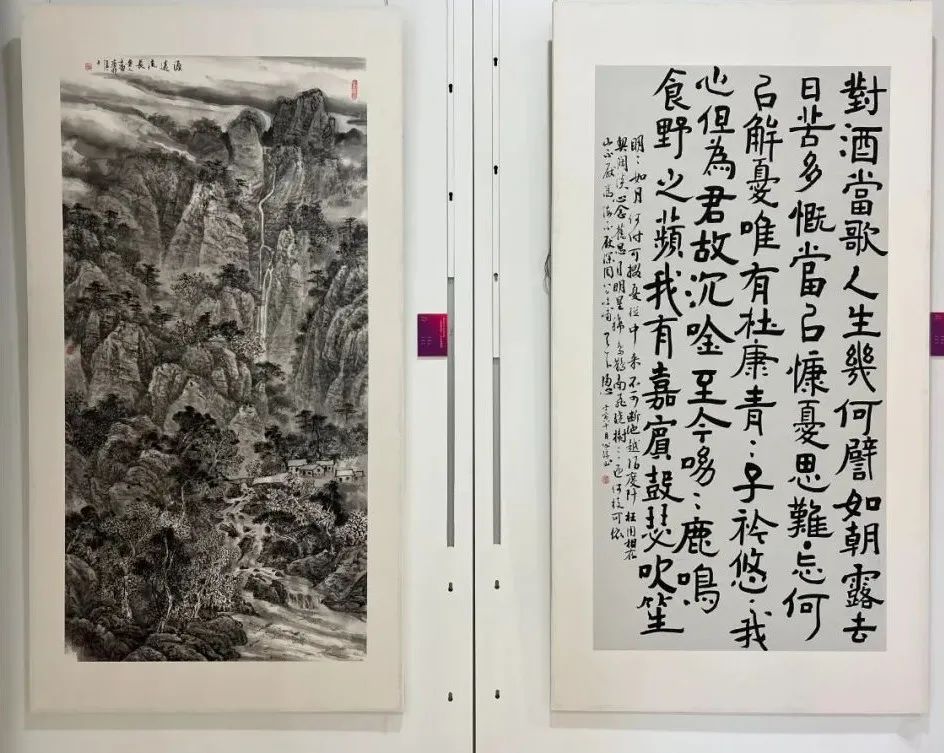 源遠流長
對酒當歌人生幾何譬如朝露去
日苦多慨當㠯慷憂思難忘何
㠯解憂唯有杜康青〻子衿悠〻我
心但為君故沉唫至今呦〻鹿鳴
食野之蘋我有嘉賓鼓瑟吹笙
明〻如月何時可掇憂從中來不可斷絕越陌度阡枉用相存
契闊談心念舊恩月明星稀烏鵲南飛繞樹三匝何枝可依
山不厭高海不厭深周公吐哺天下歸心 壬寅十月